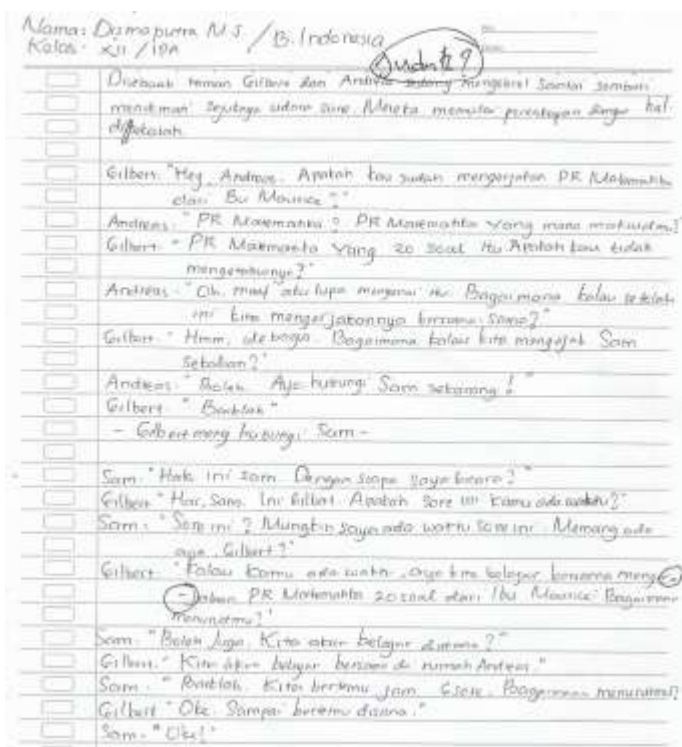 Nama: Damaputra M J / B. Indonesia
Kelas: XII / IPA
Disebuah taman Gilbert dan Andreas sedang mengobrol santai sembari
menikmati sejuknya udara sore. Mereka memulai percakapan dengan hal
disekolah
Gilbert: "Hey, Andreas. Apakah kau sudah mengerjakan PR Matematika
dari Bu Maurice?"
Andreas: "PR Matematika? PR Matematika yang mana maksudmu?"
Gilbert: "PR Matematika yang 20 soal itu. Apakah kau tidak
mengetahuinya?"
Andreas: "Oh, maaf aku lupa mengenai itu. Bagaimana kalau setelah
ini kita mengerjakannya bersama-sama?"
Gilbert: "Hmm, ide bagus. Bagaimana kalau kita mengajak Sam
sekalian?"
Andreas: "Boleh. Ayo hubungi Sam sekarang!"
Gilbert: "Baiklah"
- Gilbert menghubungi Sam -
Sam: "Halo ini Sam. Dengan siapa saya bicara?"
Gilbert: "Hai, Sam. Ini Gilbert. Apakah sore ini kamu ada waktu?"
Sam: "Sore ini? Mungkin saya ada waktu sore ini. Memang ada
apa, Gilbert?"
Gilbert: "Kalau kamu ada waktu, ayo kita belajar bersama menge-
-jakan PR Matematika 20 soal dari Ibu Maurice. Bagaimana
menurutmu?"
Sam: "Boleh juga. Kita akan belajar dimana?"
Gilbert: "Kita akan belajar bersama di rumah Andreas."
Sam: "Baiklah. Kita bertemu jam 6 sore. Bagaimana menurutmu?"
Gilbert: "Oke. Sampai bertemu disana."
Sam: "Oke!"